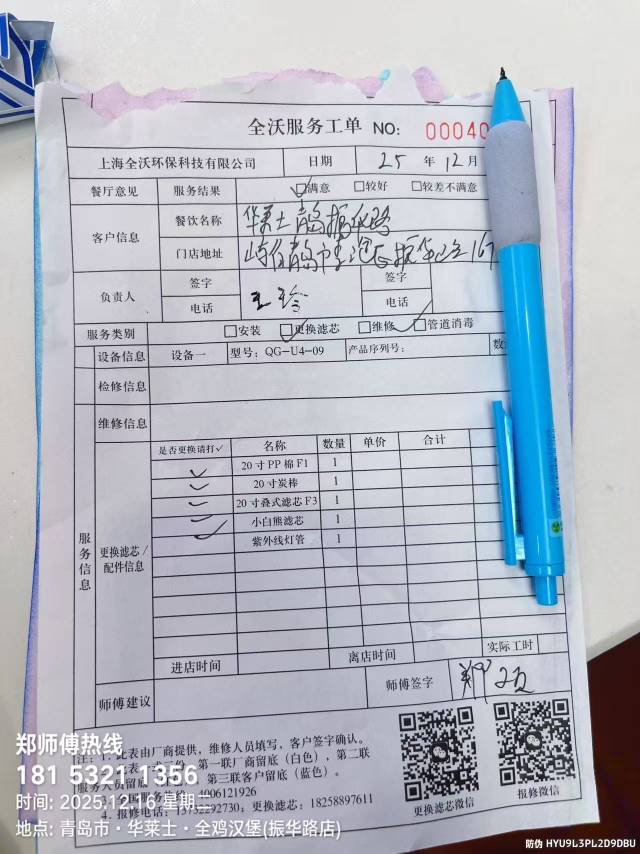 全沃服务工单 NO: 00040
上海全沃环保科技有限公司 日期 25 年 12 月
餐厅意见 服务结果 ☑满意 □较好 □较差不满意
客户信息 餐饮名称 华莱士青岛振华路
门店地址 振华路167
负责人 签字 王 签字
电话 电话
服务类别 □安装 ☑更换滤芯 □维修 ☑管道消毒
设备信息 设备一 型号: QG-U4-09 产品序列号: 数
检修信息
维修信息
服务信息
更换滤芯/配件信息
是否更换请打✓ 名称 数量 单价 合计
✓ 20寸PP棉F1 1
✓ 20寸炭棒 1
✓ 20寸叠式滤芯F3 1
✓ 小白熊滤芯 1
✓ 紫外线灯管 1
进店时间 离店时间 实际工时
师傅建议 师傅签字 郑
注: 1. 此表由厂商提供，维修人员填写，客户签字确认。
第一联厂商留底（白色），第二联
服务人员留底 第三联客户留底（蓝色）。
4006121926
4. 报修电话: 13732292730; 更换滤芯: 18258897611
更换滤芯微信 报修微信
郑师傅热线
181 5321 1356
时间: 2025.12.16 星期二
地点: 青岛市·华莱士·全鸡汉堡(振华路店)
防伪 HYU9L3PL2D9DBU